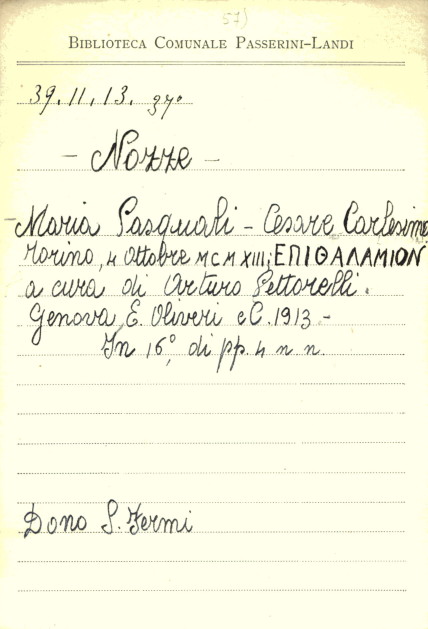 57)
BIBLIOTECA COMUNALE PASSERINI-LANDI
39.11.13. 37º
- Nozze -
Maria Pasquali - Cesare Carlesimo
Torino, 4 Ottobre MCMXIII; ΕΠΙΘΑΛΑΜΙΟΝ
a cura di Arturo Pettorelli.
Genova, E. Oliveri e C. 1913 -
In 16º, di pp. 4 n. n.
Dono S. Fermi